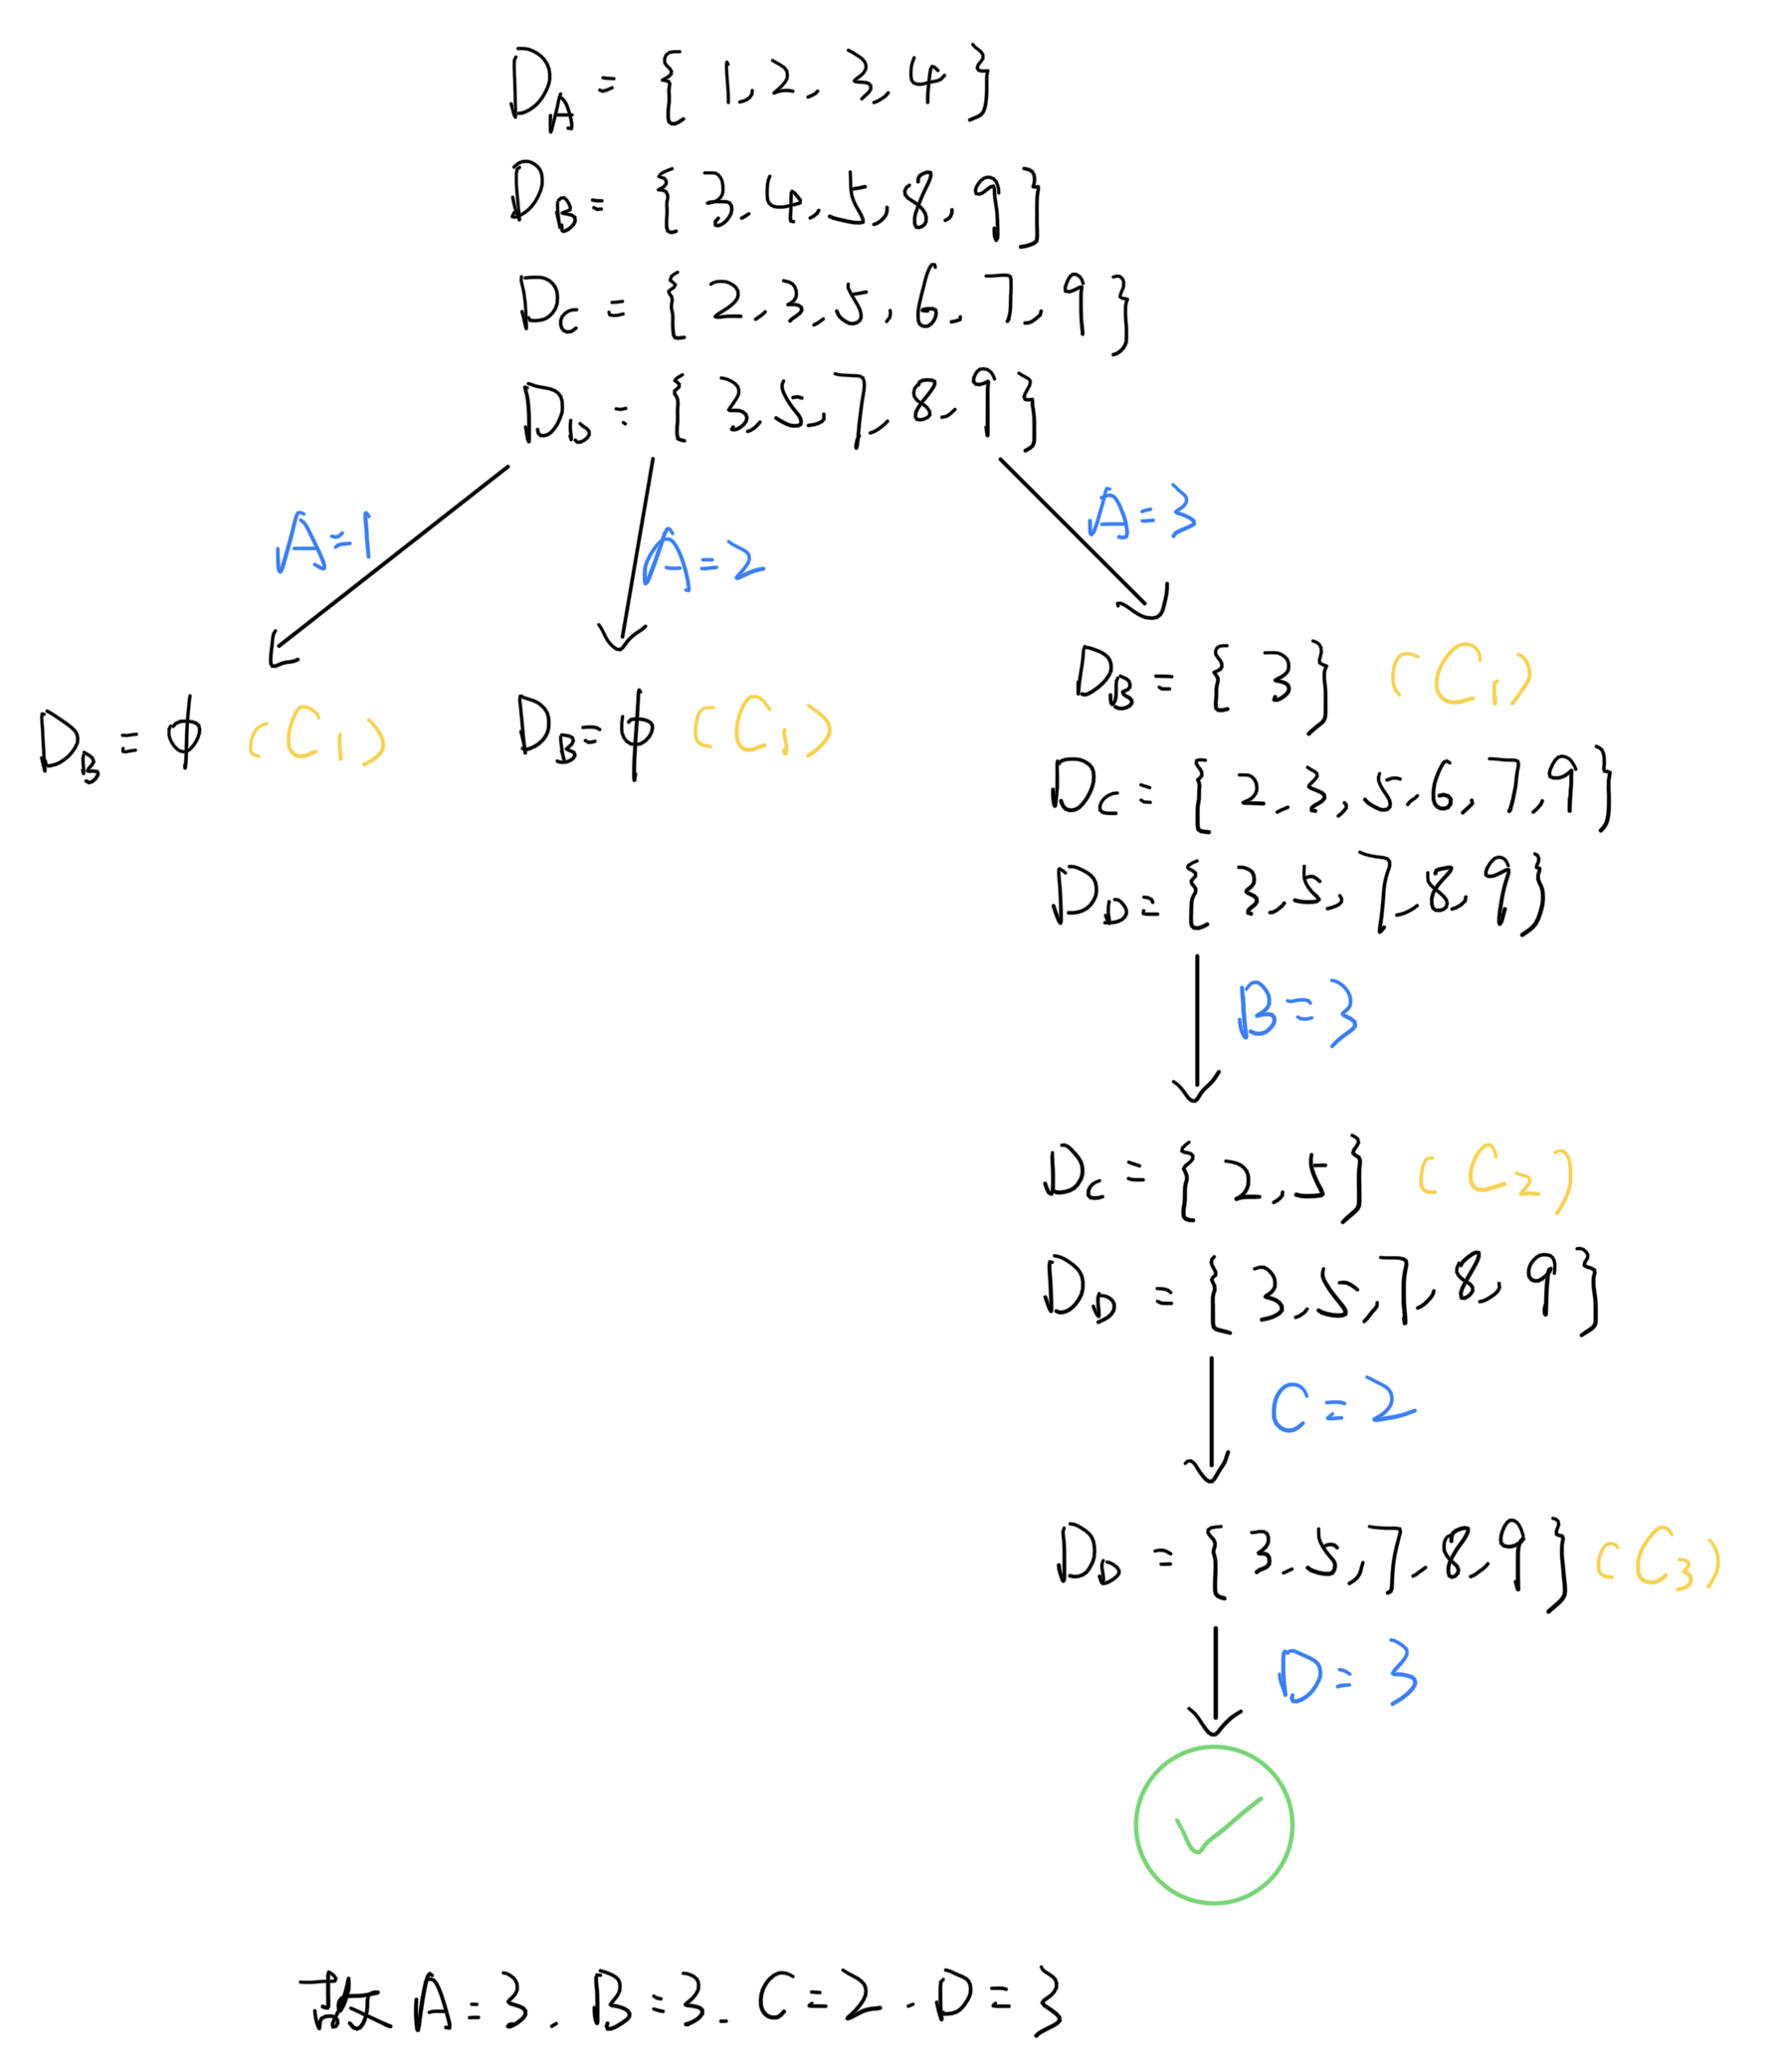 D_A = { 1, 2, 3, 4 }
D_B = { 3, 4, 5, 8, 9 }
D_C = { 2, 3, 5, 6, 7, 9 }
D_D = { 3, 5, 7, 8, 9 }
A=1
A=2
A=3
D_B = ϕ (C₁)
D_B = ϕ (C₁)
D_B = { 3 } (C₁)
D_C = { 2, 3, 5, 6, 7, 9 }
D_D = { 3, 5, 7, 8, 9 }
B=3
D_C = { 2, 5 } (C₂)
D_D = { 3, 5, 7, 8, 9 }
C=2
D_D = { 3, 5, 7, 8, 9 } (C₃)
D=3
故 A=3, B=3, C=2, D=3